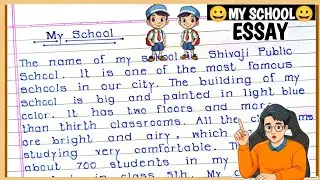 MY SCHOOL
ESSAY
My School
The name of my school Shivaji Public
School. It is one of the most famous
schools in our city. The building of my
school is big and painted in light blue
color. It has two floors and more
than thirth classrooms. All the
are bright and airy, which
studying very comfortable. The
about 700 students in my
in class 5th. My